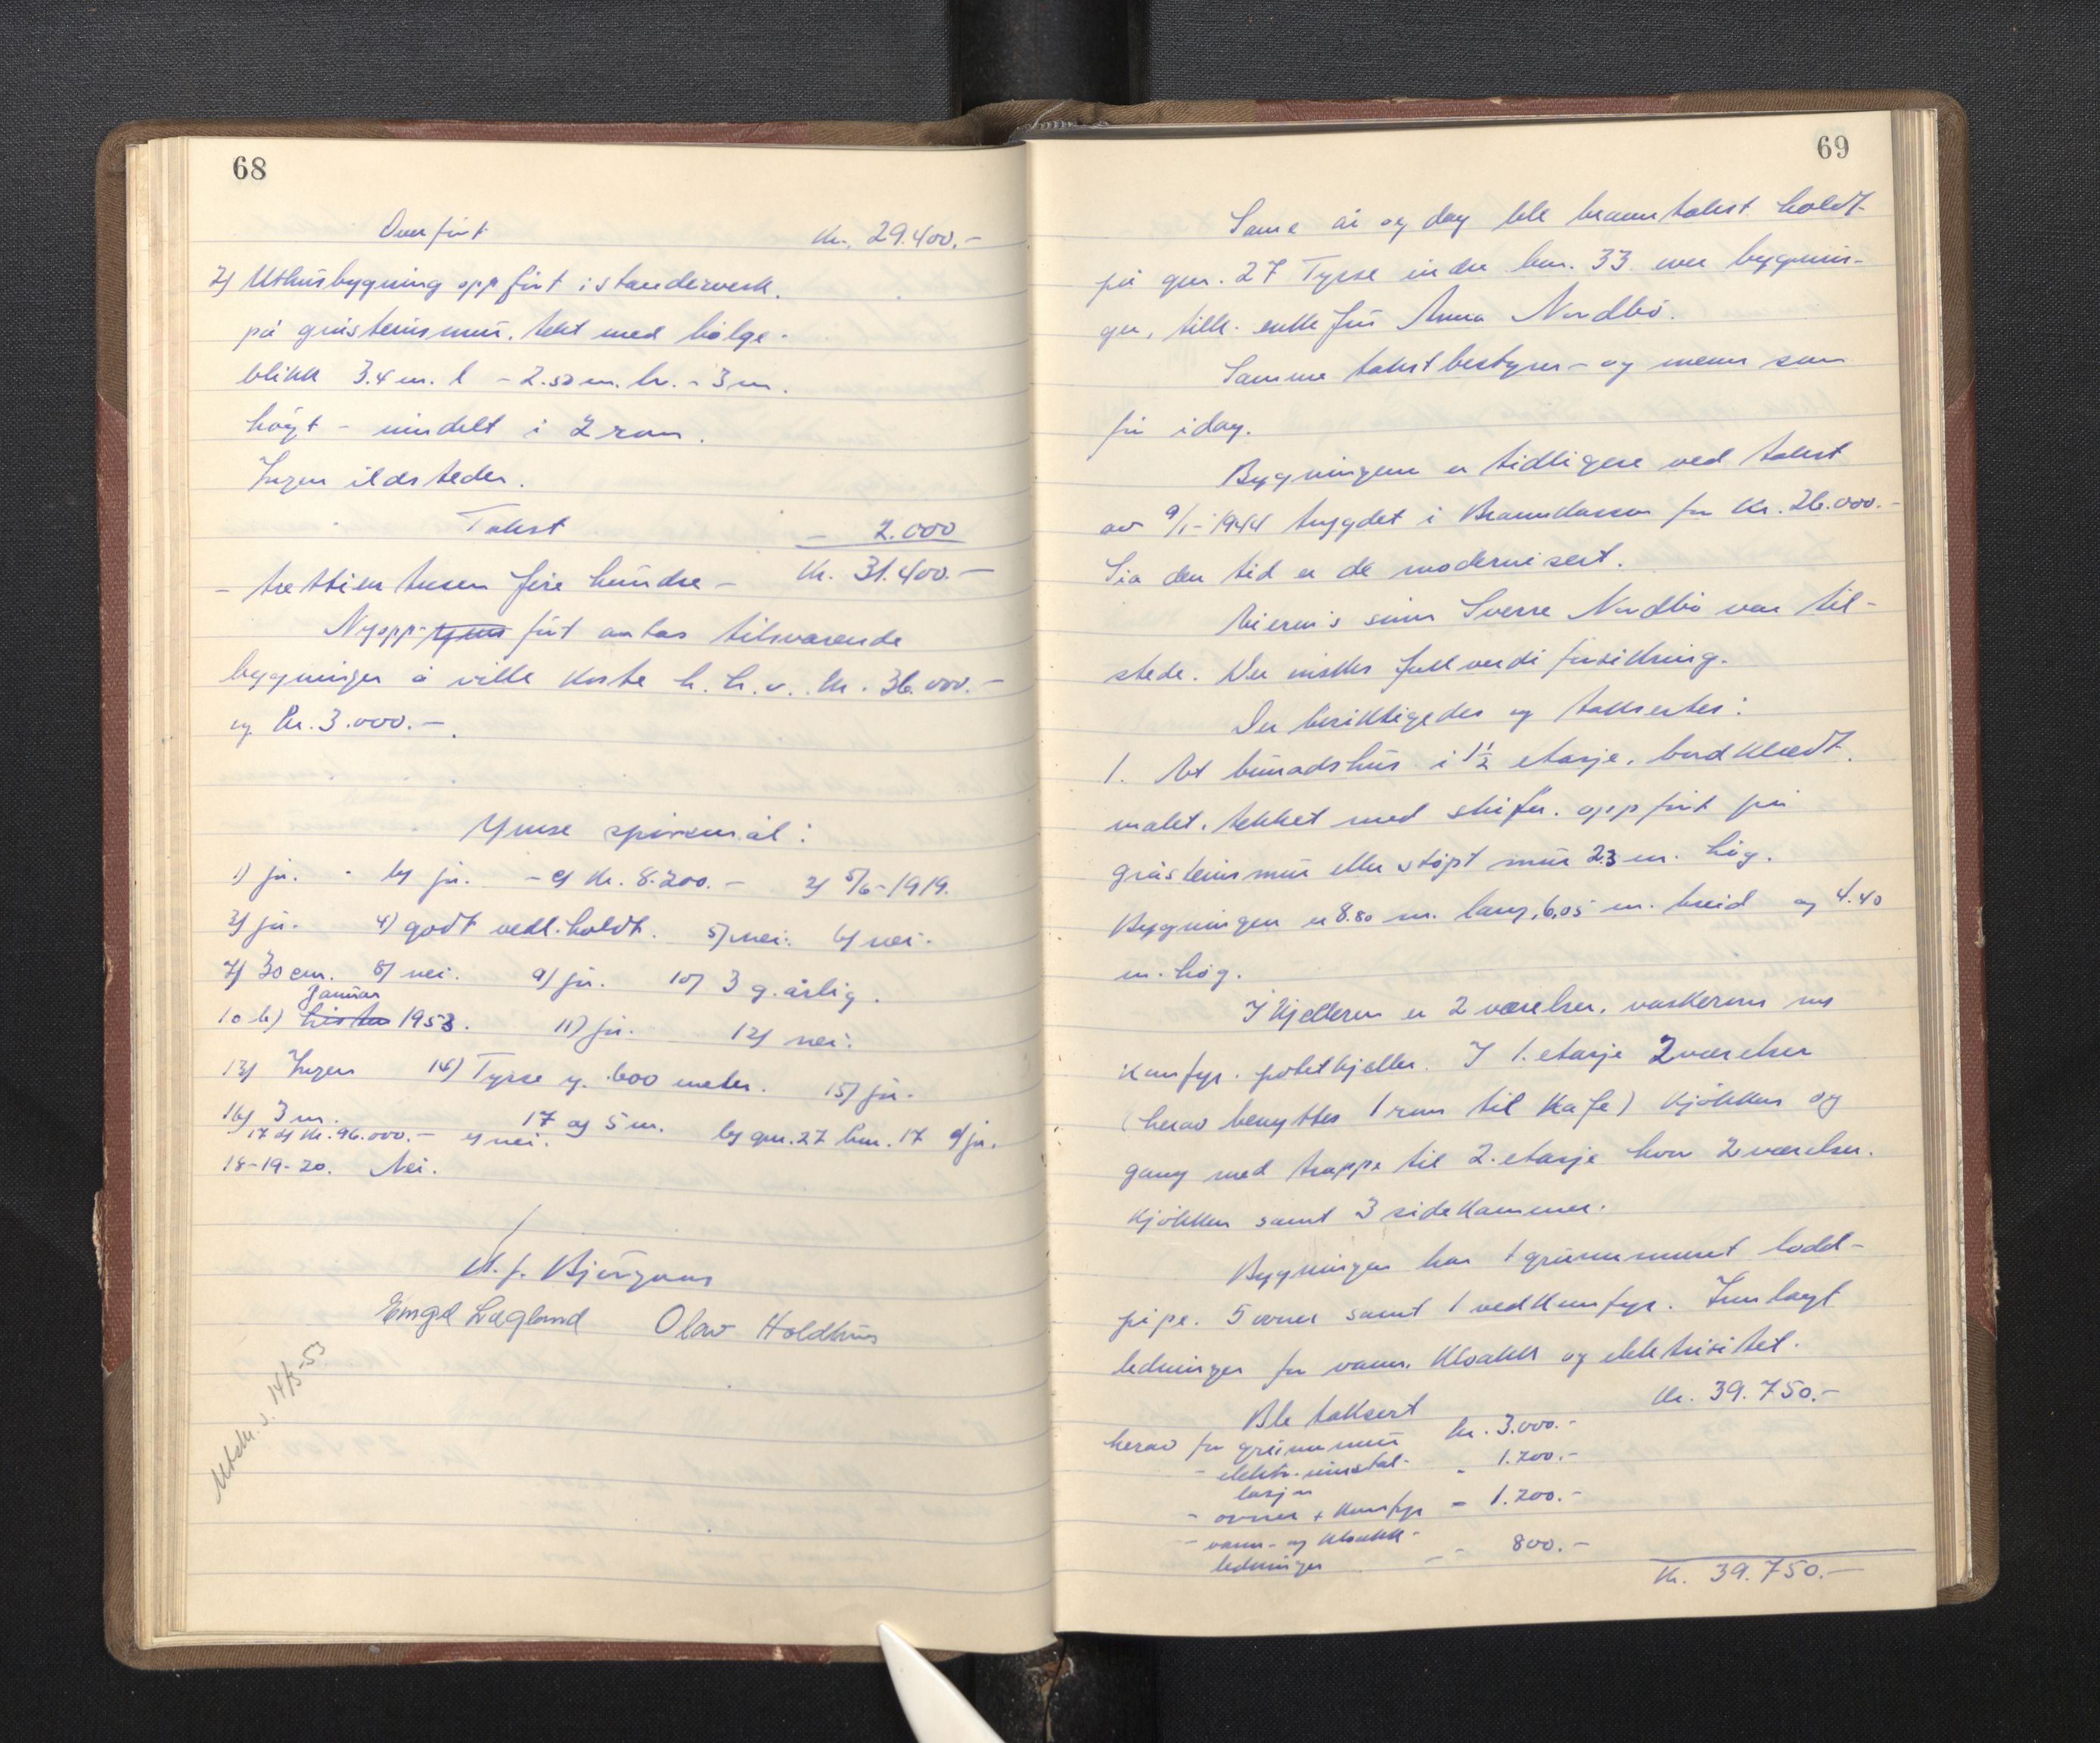 68
Overført Kr. 29.400.-
2) Uthusbygning oppført i standerverk.
på gråsteinsmur, tekt med bølge-
blikk 3.4 m. l - 2.50 m. br. - 3 m.
høgt - inndelt i 2 rom.
Ingen ildsteder.
Takst - 2.000
- trettien tusen fire hundre - Kr. 31.400.-
Nyopp- ført antas tilsvarende
bygninger å ville koste h.h.v. kr. 36.000.-
og kr. 3.000.-.
Ymse spørsmål:
1) ja. - b) ja. - c) kr. 8.200.- 2) 5/6-1919.
3) ja. 4) godt vedl.holdt. 5) nei. 6) nei.
7) 30 cm. 8) nei. 9) ja. 10) 3 g. årlig.
januar
10 b) 1953. 11) ja. 12) nei.
13) Ingen 14) Tysse y. 600 meter. 15) ja.
16) 3 m. 17 a) 5 m. b) gnr. 27 bnr. 17 c) ja.
17 d) kr. 96.000.- e) nei.
18-19-20. Nei.
Engel Lægland Olav Holdhus
Utskr. s. 14/5-53
69
Same år og dag ble branntakst holdt
på gnr. 27 Tysse indre bnr. 33 over bygnin-
ger, tilh. enkefru Anna Nordbø.
Samme takstbestyrer- og menn som
før idag.
Bygningene er tidligere ved takst
av 9/1-1944 trygdet i Brannkassen for kr. 26.000.-
Sia den tid er de modernisert.
Eierens sønn Sverre Nordbø var til-
stede. Der ønskes fullverdiforsikring.
Der besiktigedes og taksertes:
1. Et bunadshus i 1½ etasje, bordkledt.
malt, tekket med skifer. oppført på
gråsteinsmur eller støpt mur 2.3 m. høg.
Bygningen er 8.80 m. lang, 6,05 m. breid og 4.40
m. høg.
I kjelleren er 2 værelser, vaskerom m/
komfyr. potetkjeller. I 1. etasje 2 værelser
(herav benyttes 1 rom til kafe) kjøkken og
gang med trappe til 2. etasje hvor 2 værelser.
kjøkken samt 3 sidekammer.
Bygningen har 1 grunnmuret lodd-
pipe. 5 ovner samt 1 vedkomfyr. Innlagt
ledninger for vann, kloakk og elektrisitet.
Ble taksert Kr. 39.750.-
herav for grunnmur kr. 3.000.-
- elektr. instal- - 1.200.-
lasjon
- ovner + komfyr - 1.200.-
- vann- og kloakk-
ledninger - - 800.-
Kr. 39.750.-